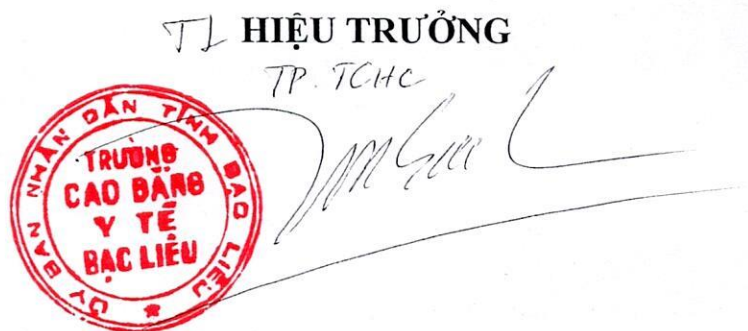 TL HIỆU TRƯỞNG
TP. TCHC
ỦY BAN NHÂN DÂN TỈNH BẠC LIÊU
TRƯỜNG
CAO ĐẲNG
Y TẾ
BẠC LIÊU